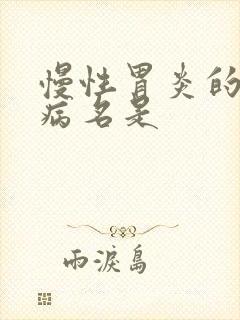 慢性胃炎的
病名是
雨淚島